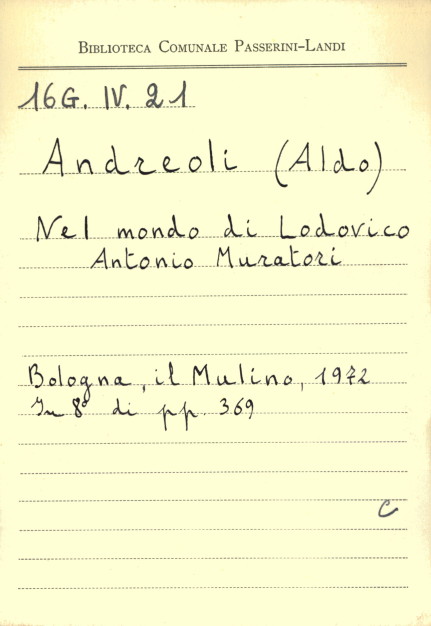 BIBLIOTECA COMUNALE PASSERINI-LANDI
16G. IV. 21
Andreoli (Aldo)
Nel mondo di Lodovico
Antonio Muratori
Bologna, il Mulino, 1972
In 8° di pp. 369
C